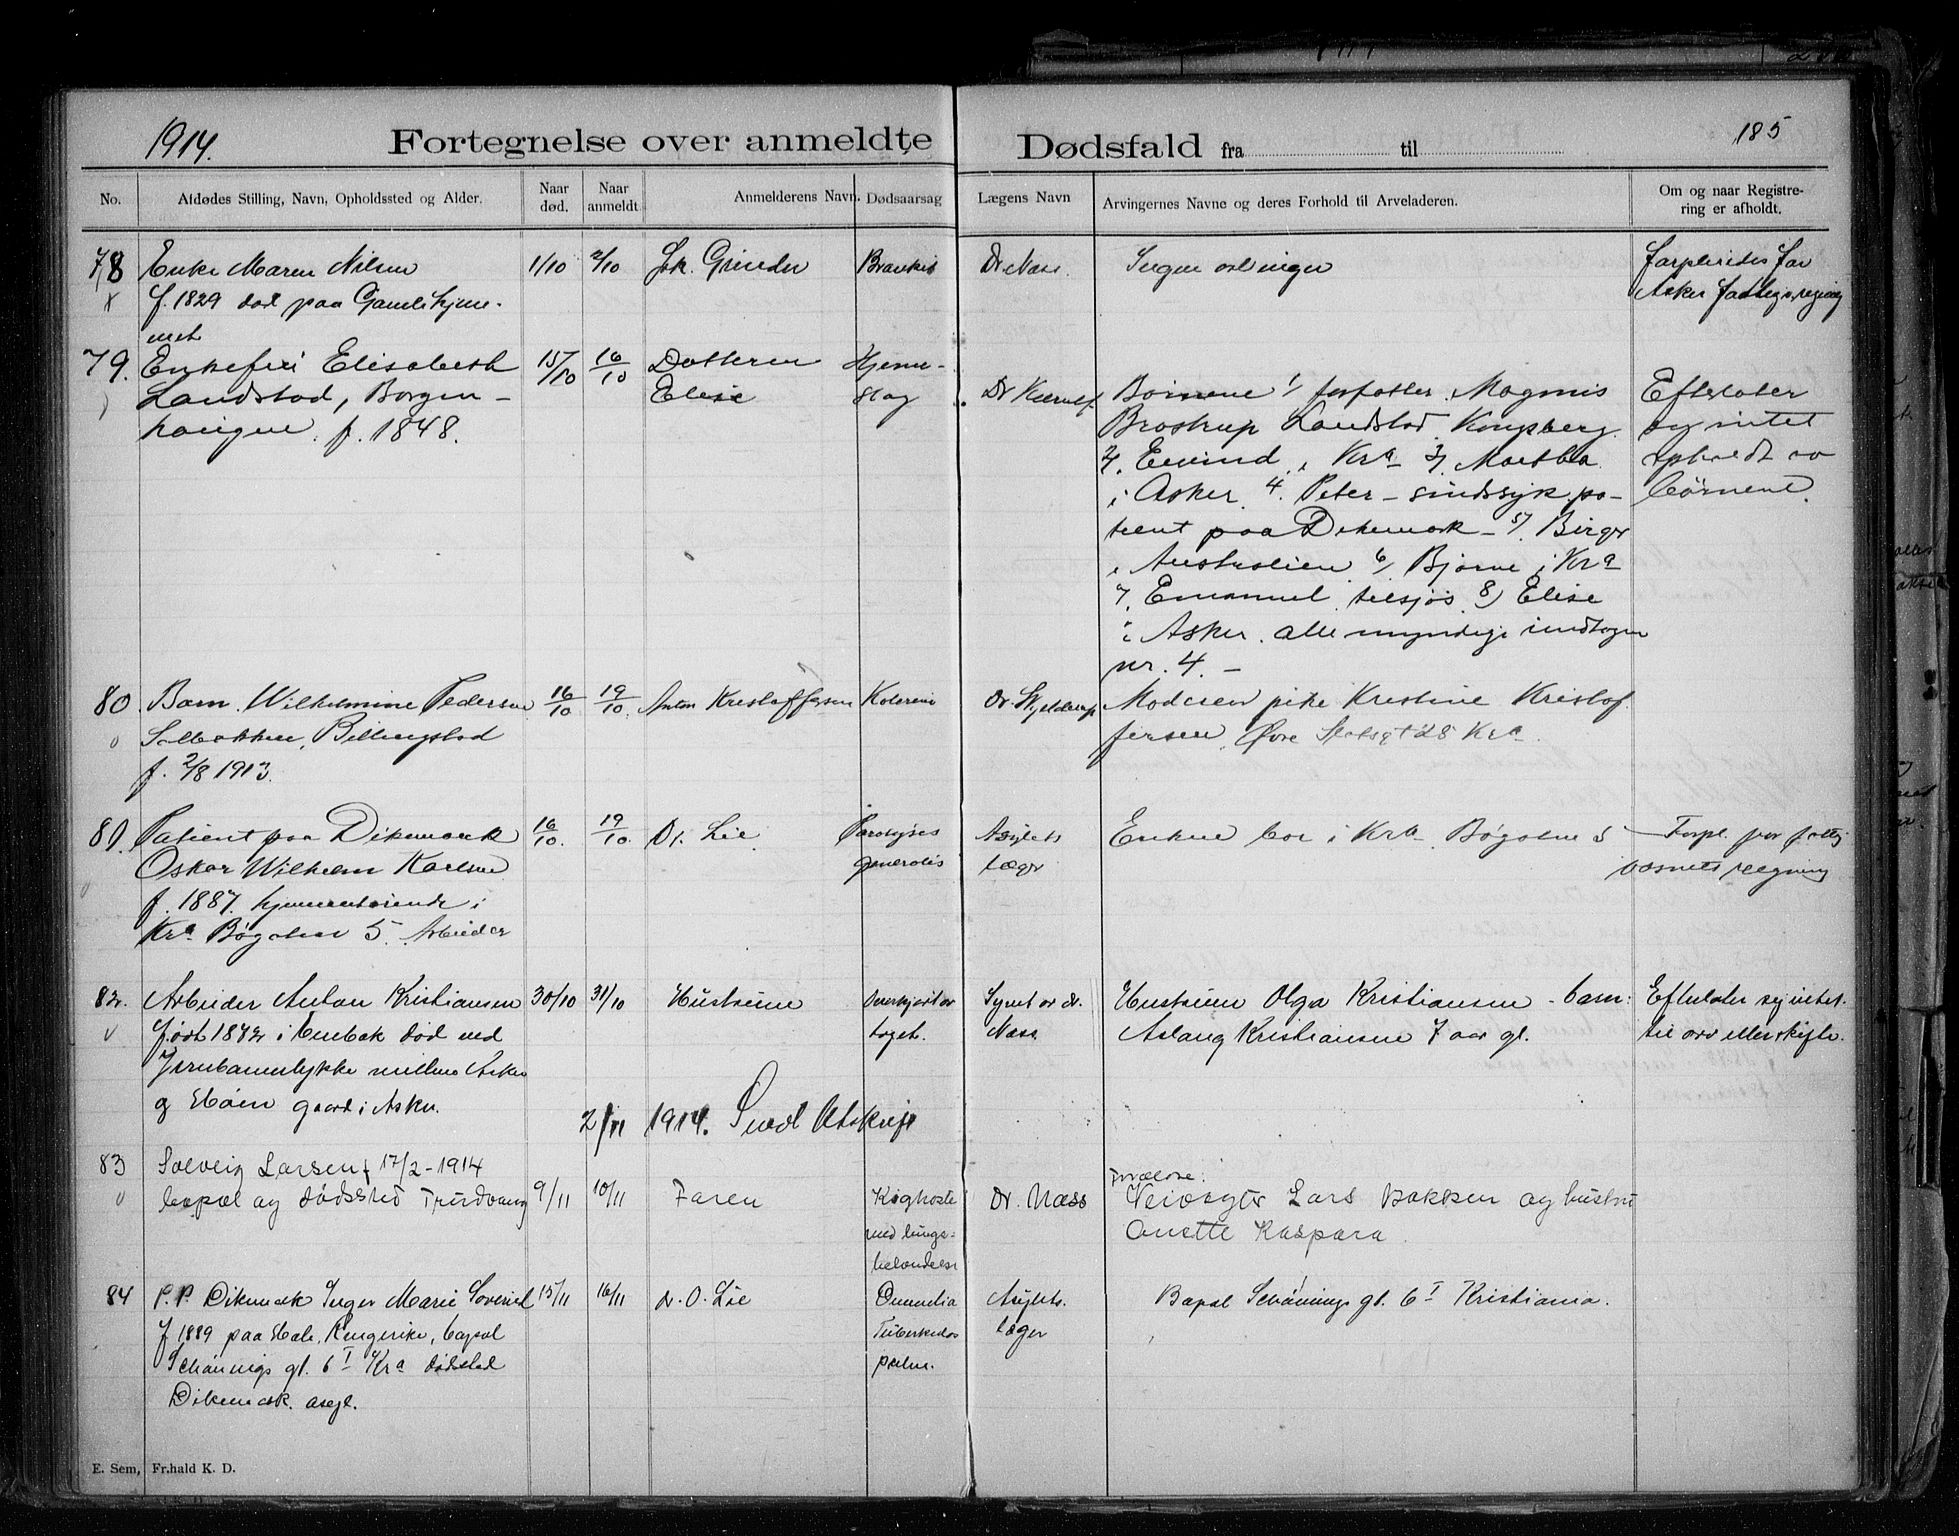 1914.
Fortegnelse over anmeldte Dødsfald fra til
185
No.
Afdødes Stilling, Navn, Opholdssted og Alder.
Naar død.
Naar anmeldt
Anmelderens Navn.
Dødsaarsag
Lægens Navn
Arvingernes Navne og deres Forhold til Arveladeren.
Om og naar Registre-
ring er afholdt.
78
Enke Maren Nilsen
f. 1829 död paa Gamlehjem-
met
1/10
2/10
Dr Næss.
Ingen arvinger
Asker
79.
Enkefru Elisabeth
Landstad, Borgen-
haugen. f. 1848.
15/10
16/10
Datteren
Elise
Hjerne-
slag
Dr
Börnene 1/ forfatter Magnus
Brostrup Landstad Kongsberg
2/. Eivind, i Kra 3/ Martha
i Asker. 4. Peter - sindssyk pa-
tient paa Dikemark - 5/. Birger
i Australien 6/ Bjarne i Kra
7. Emanuel tilsjös 8) Elise
i Asker. alle myndige undtagen
nr. 4 -
Efterlater
sig intet
opholdt av
börnene.
80
Barn Wilhelmine Pedersen
Solbakken, Billingstad
f. 2/8 1913.
16/10
19/10
Anton Kristoffersen
Kolerine
Dr. Skjelderup
Moderen pike Kristine Kristof
fersen, Øvre Slotsgt 28 Kra
81.
Patient paa Dikemark
Oskar Wilhelm Karlsen
f. 1887. hjemmehörende i
Kra Bøgaten 5. Arbeider
16/10.
19/10.
Dr. Lie
Paralyses
generalis
Asylets
Læger
Enken bor i Kra Bøgaten 5
Forpl. for fattig
væsnets regning
82.
Arbeider Anton Kristiansen
födt 1872 i Enebak död ved
Jernbanelykke mellem Asker
og Hvalstad gaard i Asker.
30/10
31/10
Hustruen
Overkjört av
toget.
Synet av dr.
Næss.
Hustruen Olga Kristiansen - barn:
Aslaug Kristiansen 7 aar gl.
Efterlater sig intet
til arv eller skifte.
2/11 1914. Sendt Utskrift
83
Solveig Larsen f 17/2 - 1914
bopæl og dödssted Trudvang
9/11
10/11
Faren
Kighoste
med lunge-
betændelse
Dr. Næss
Forældre:
Veivogter Lars Bakken og hustru
Anette Kaspara
84
P.P. Dikemark Inger Marie
f 1889 paa Hole, Ringerike, bopæl
Schönings gt. 6 I Kra dödssted
Dikemark asyl.
15/11
16/11
dr. O. Lie
Dementia
Tuberkulos
pulm.
Asylets.
læger
Bopæl Schönings gt. 6 I Kristiania.
E. Sem, Fr.hald K. D.